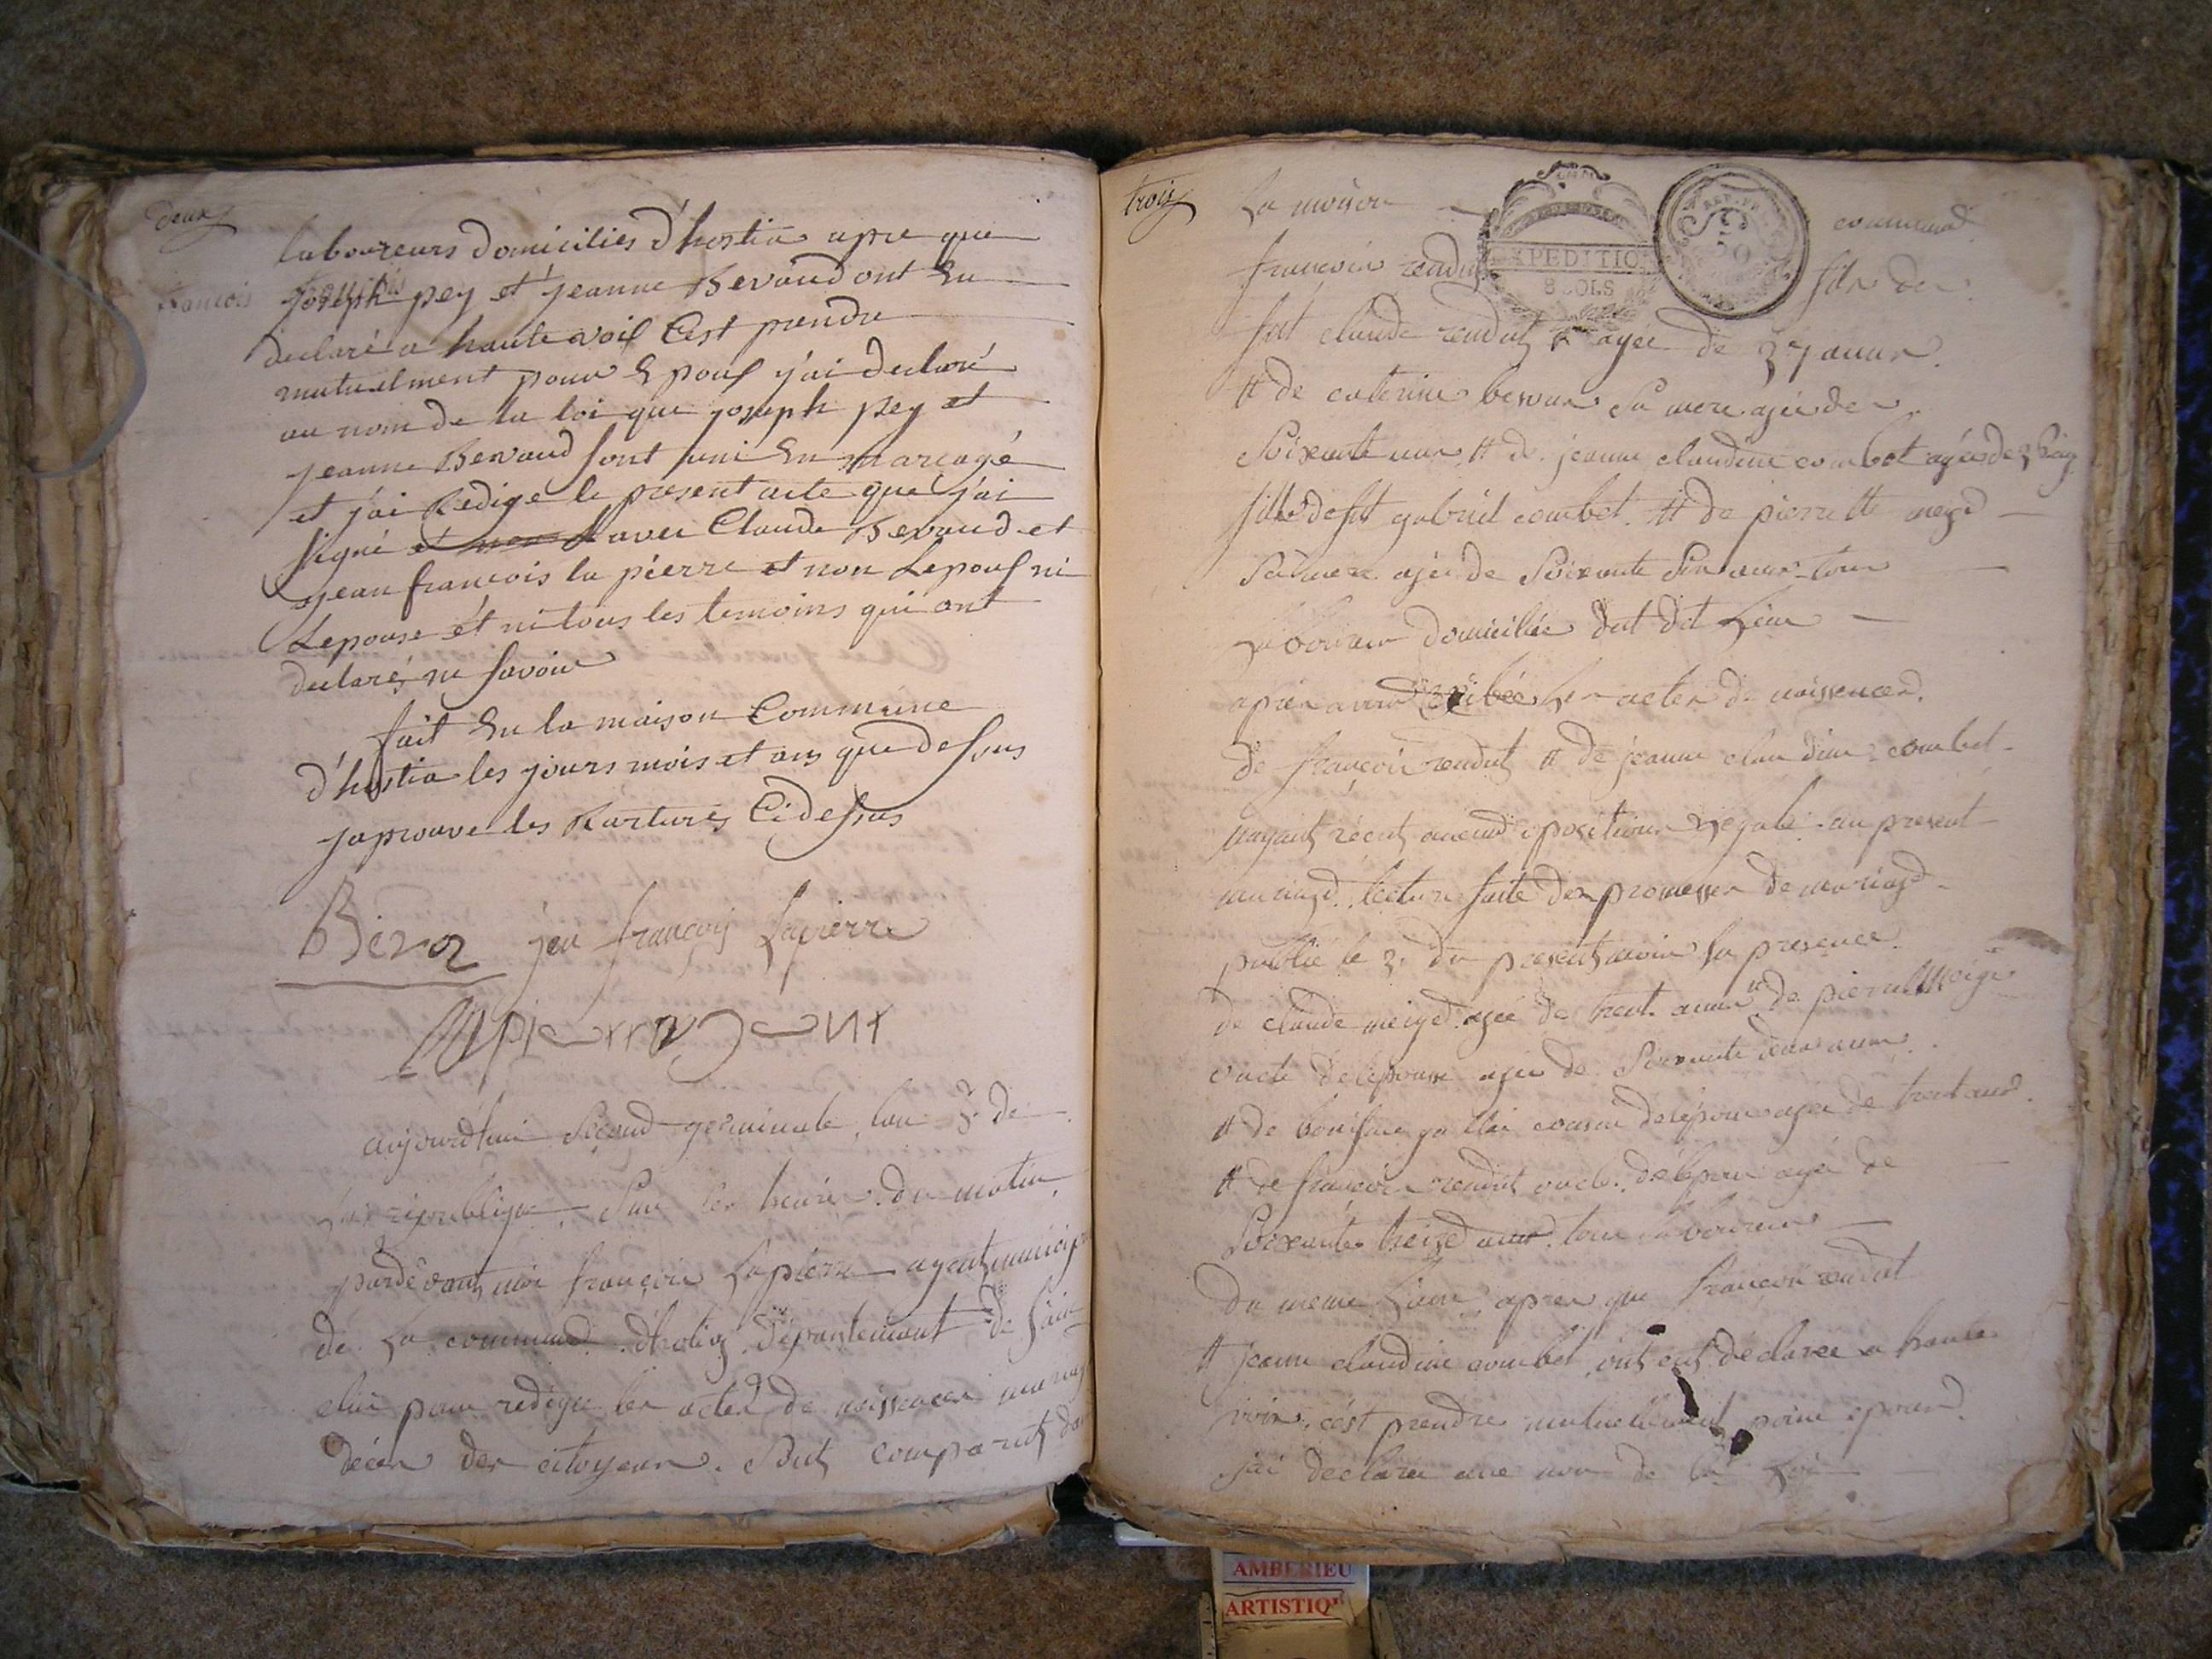 deux
laboureurs domiciliés d'hostia apre que
francois
joseph pey et jeanne Bevaud ont En
declaré a haute voi Cest prendre
mutuelment pour Epous j'ai declaré
au nom de la loi que joseph pey et
jeanne Bevaud sont uni En mareagé
et j'ai Redige le present acte que j'ai
signé et avec Claude Bevaud et
jean francois la pierre et non Lepous ni
Lepouse et ni tous les temoins qui ont
declarés ne savoir
fait En la maison Commune
d'hostia les jours mois et ans que dessus
japrouve les Ratures Cidessus
jean françois Lapierre
aujourdhui second germinale lan 7. de
La république sur les heure du matin
pardevant moi françois Lapierre agent municipa
de La commune département de
elui pour rediger les actes de naissances
décès des citoyens. Sont comparut
trois
La maison commune
EXPEDITIO
8 SOLS
REP. FRA
50
françois rendut fils de
fut claude rendut agée de 27 anns
et de caterine sa mere agée de
Soixante ans et de jeanne claudine combet agée de
fille de fut gabriel combet et de pierrette meyé
Sa mere agée de Soixante ans tous
domicilée dut dit Lieu
après avoir les actes de naissence
de françois rendut et de jeanne claudine combet
nayant récut aucune opositions au present
mariage. lecture faite des promesses de mariage
publié le 3. du present mois La presence
de claude agée de trent anns et de
oncle de lepouse agée de Soixante ans
et de boniface cousin de lépouse agée de trent ans
et de françois rendut oncle de lépou agé de
Soixante treize ans tous laboureur
du meme Lieu apres que françois rendut
et jeanne claudine combet ont ent declaree a haute
voix, cést prendre mutuellement pour epoux
jai declaree aue nom de la Loi
AMBERIEU
ARTISTIQ